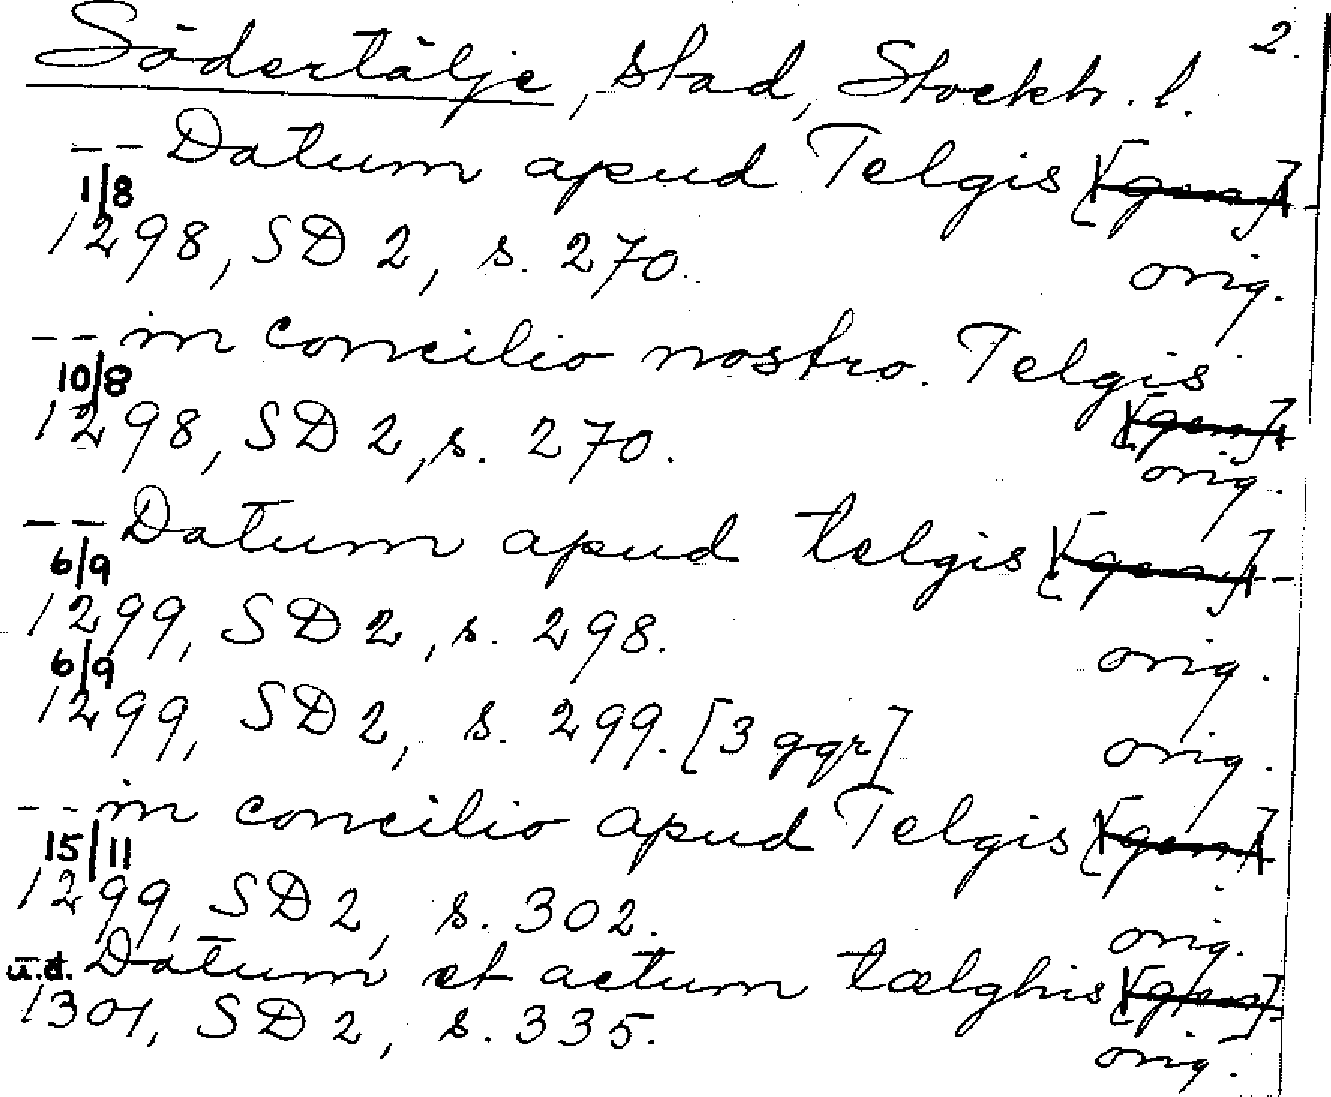 2.
Södertälje, stad, Stockh. l.
-- Datum apud Telgis [gen]
1/8
1298, SD 2, s. 270. orig.
-- in concilio nostro. Telgis
10/8
1298, SD 2, s. 270. [gen]
orig.
-- Datum apud telgis [gen]
6/9
1299, SD 2, s. 298. orig.
6/9
1299, SD 2, s. 299. [3 ggr] orig.
-- in concilio apud Telgis [gen]
15/11
1299, SD 2, s. 302. orig.
u.d. Datum et actum tælghis [gen]
1301, SD 2, s. 335. orig.